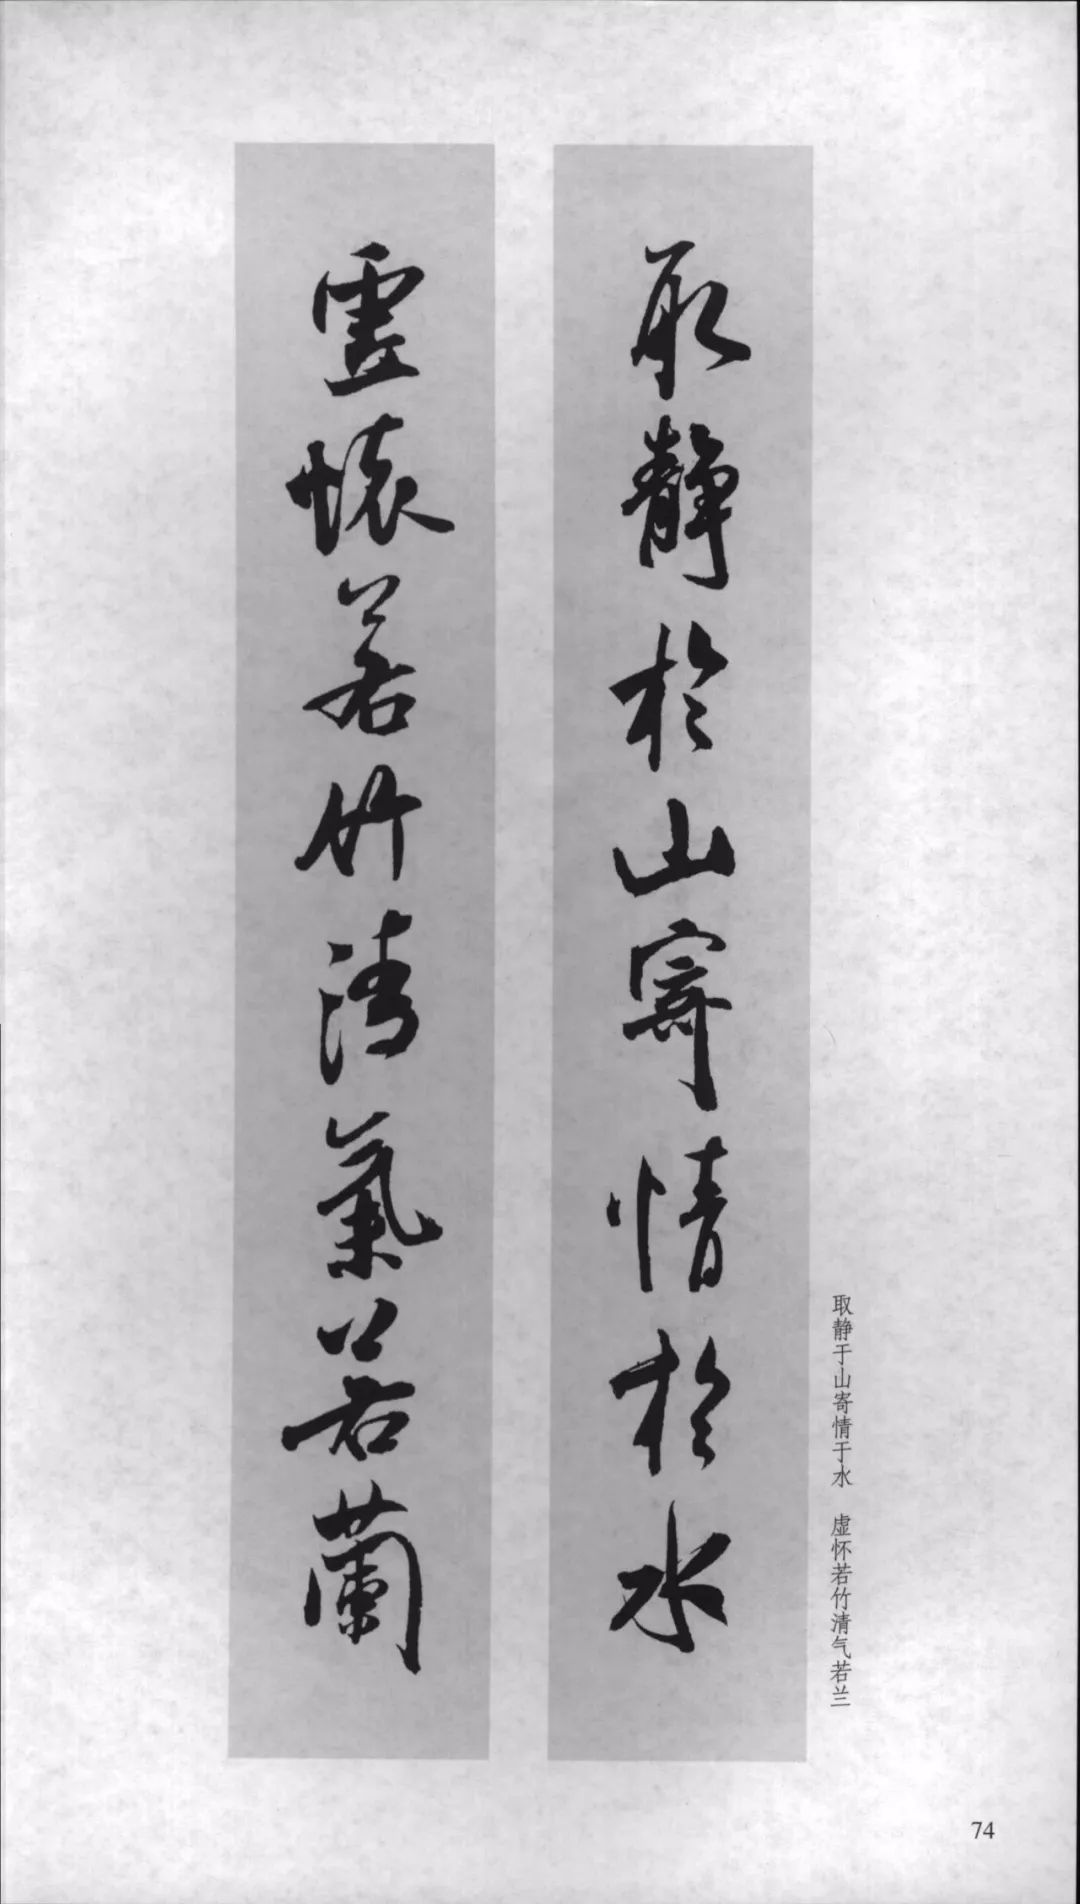 取靜於山寄情於水
虛懷若竹清氣若蘭
取静于山寄情于水　虚怀若竹清气若兰
74